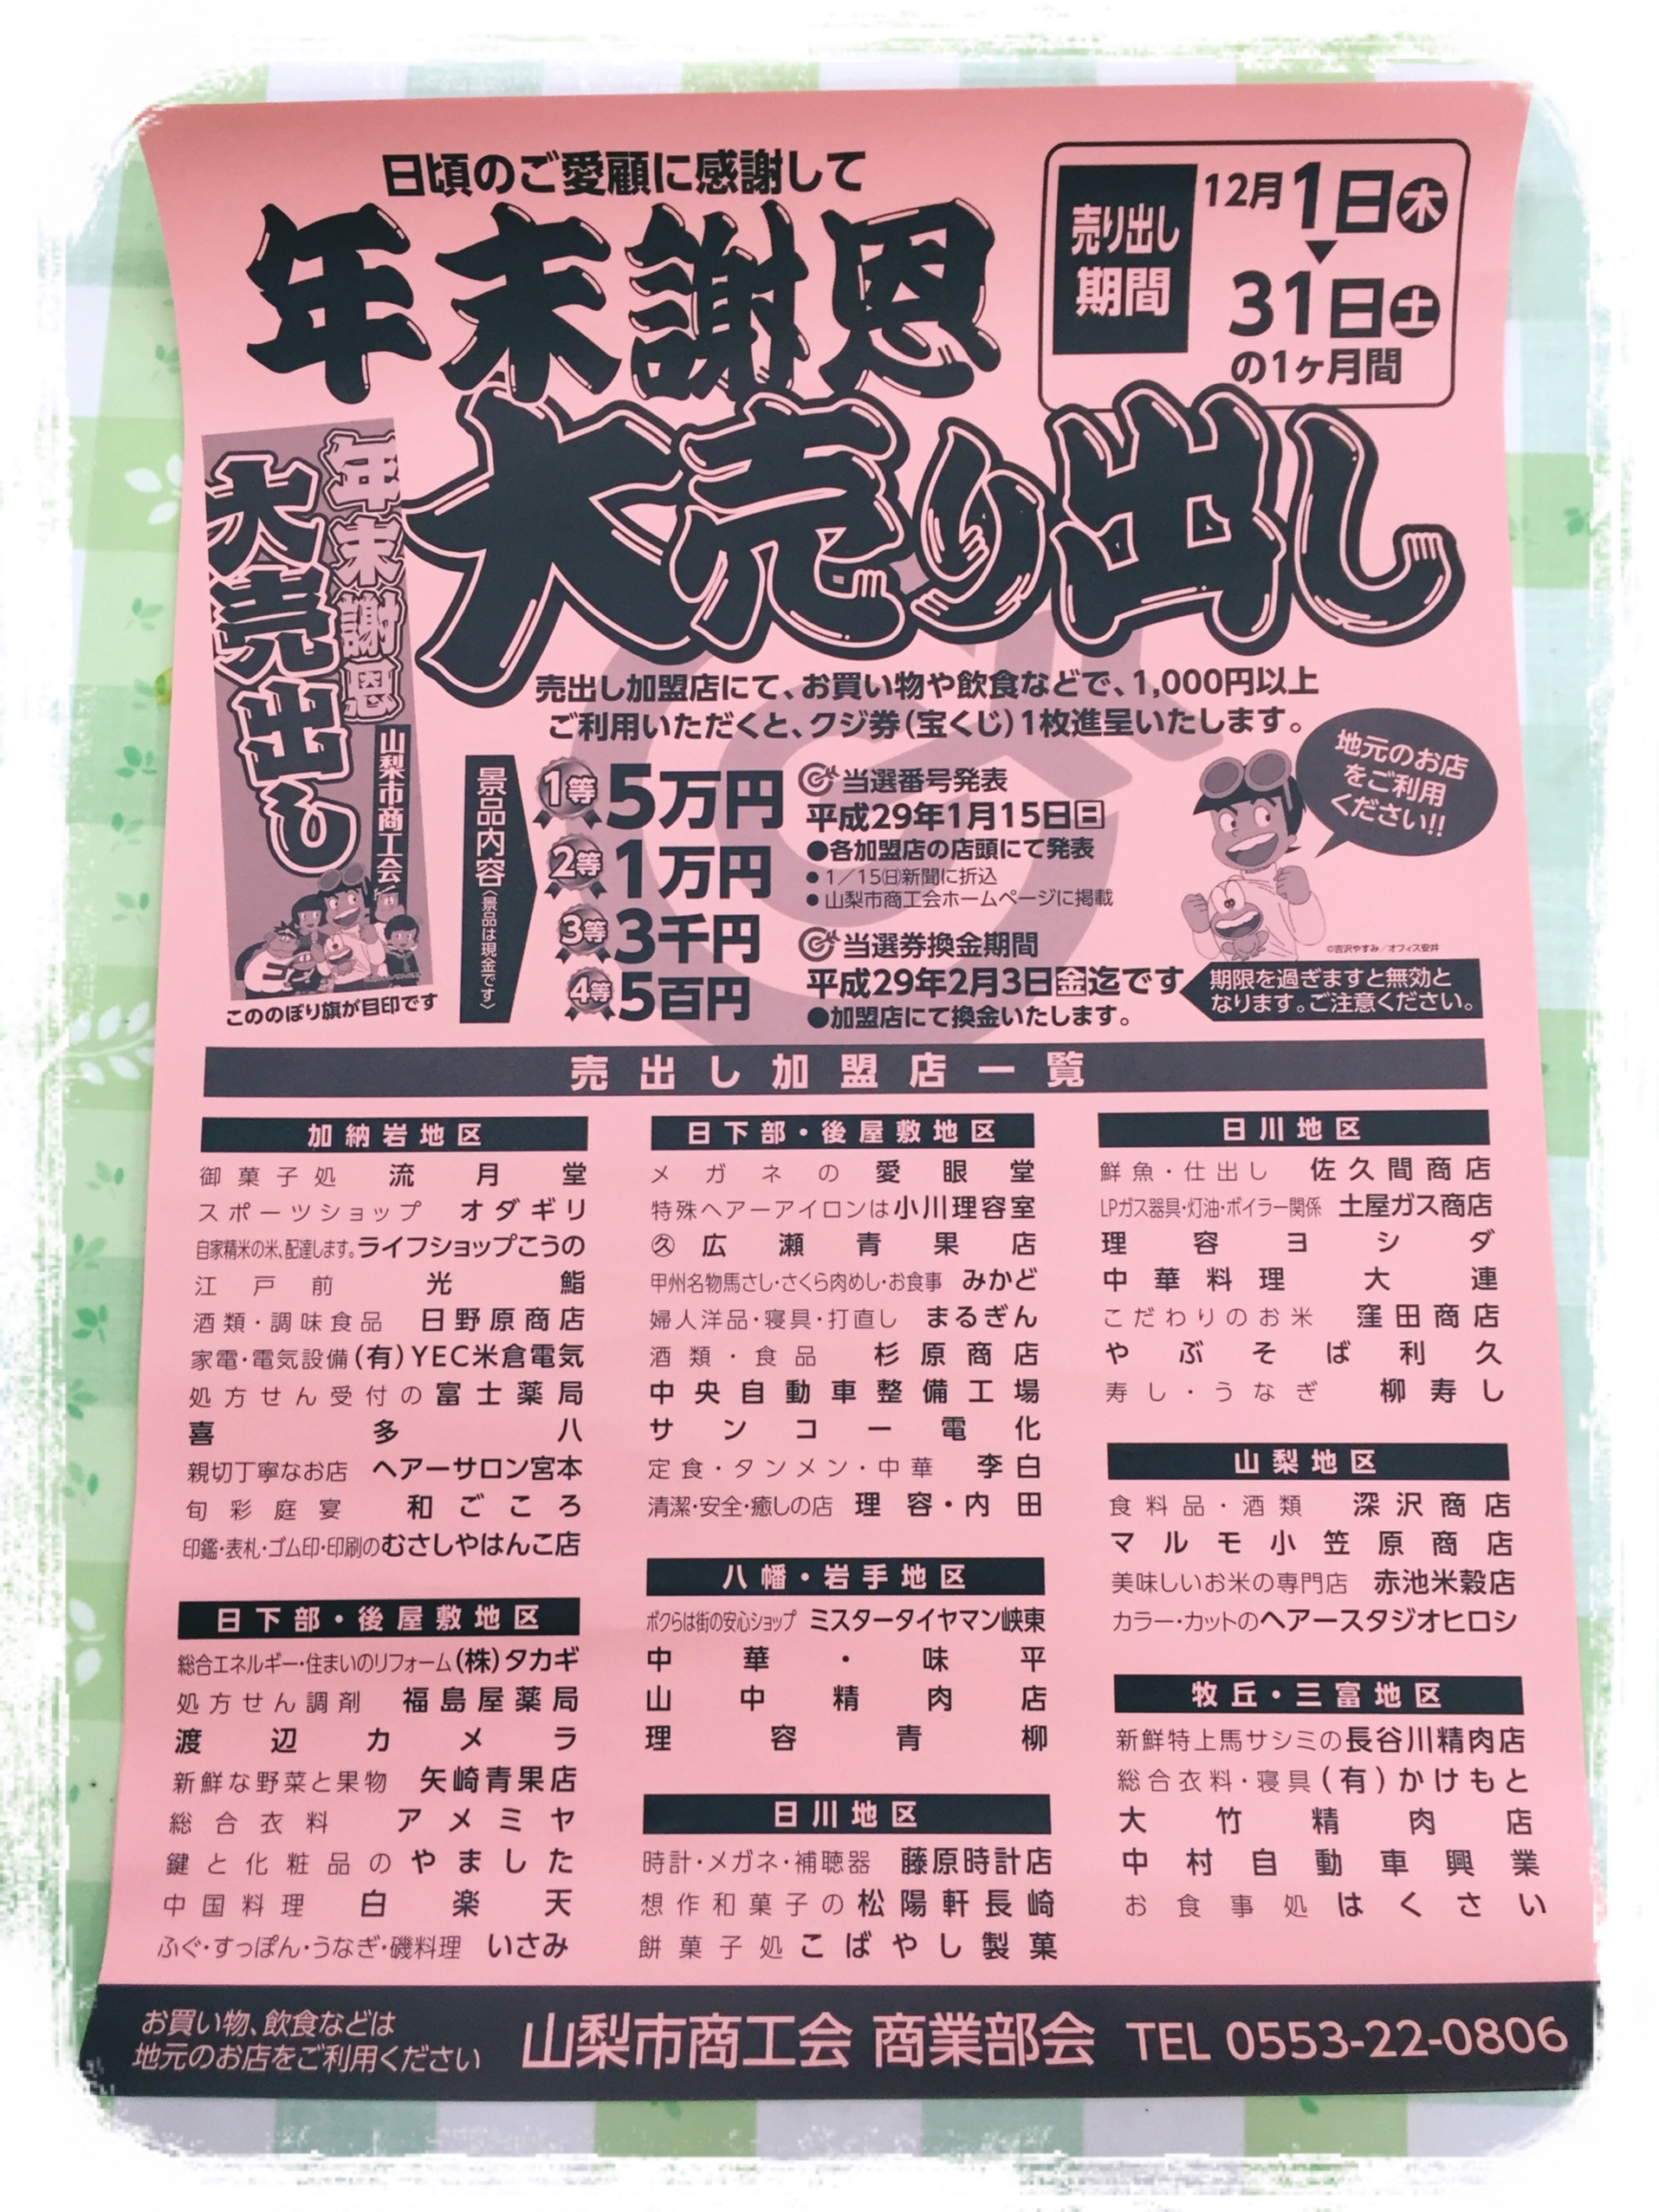 日頃のご愛顧に感謝して
年末謝恩
大売り出し
売り出し
期間
12月1日㊍
▼
31日㊏
の1ヶ月間
年末謝恩
大売出し
山梨市商工会
こののぼり旗が目印です
売出し加盟店にて、お買い物や飲食などで、1,000円以上
ご利用いただくと、クジ券(宝くじ)1枚進呈いたします。
景品内容〈景品は現金です〉
1等 5万円
2等 1万円
3等 3千円
4等 5百円
当選番号発表
平成29年1月15日日
●各加盟店の店頭にて発表
●1/15㈰新聞に折込
●山梨市商工会ホームページに掲載
当選券換金期間
平成29年2月3日金迄です
●加盟店にて換金いたします。
地元のお店
をご利用
ください!!
©吉沢やすみ/オフィス安井
期限を過ぎますと無効と
なります。ご注意ください。
売出し加盟店一覧
加納岩地区
御菓子処 流月堂
スポーツショップ オダギリ
自家精米の米、配達します。ライフショップこうの
江戸前 光鮨
酒類・調味食品 日野原商店
家電・電気設備(有)YEC米倉電気
処方せん受付の富士薬局
喜多八
親切丁寧なお店 ヘアーサロン宮本
旬彩庭宴 和ごころ
印鑑・表札・ゴム印・印刷のむさしやはんこ店
日下部・後屋敷地区
総合エネルギー・住まいのリフォーム(株)タカギ
処方せん調剤 福島屋薬局
渡辺カメラ
新鮮な野菜と果物 矢崎青果店
総合衣料 アメミヤ
鍵と化粧品のやました
中国料理 白楽天
ふぐ・すっぽん・うなぎ・磯料理 いさみ
日下部・後屋敷地区
メガネの愛眼堂
特殊ヘアーアイロンは小川理容室
㊇広瀬青果店
甲州名物馬さし・さくら肉めし・お食事 みかど
婦人洋品・寝具・打直し まるぎん
酒類・食品 杉原商店
中央自動車整備工場
サンコー電化
定食・タンメン・中華 李白
清潔・安全・癒しの店 理容・内田
八幡・岩手地区
ボクらは街の安心ショップ ミスタータイヤマン峡東
中華・味平
山中精肉店
理容青柳
日川地区
時計・メガネ・補聴器 藤原時計店
想作和菓子の松陽軒長崎
餅菓子処こばやし製菓
日川地区
鮮魚・仕出し 佐久間商店
LPガス器具・灯油・ボイラー関係 土屋ガス商店
理容ヨシダ
中華料理 大連
こだわりのお米 窪田商店
やぶそば利久
寿し・うなぎ 柳寿し
山梨地区
食料品・酒類 深沢商店
マルモ小笠原商店
美味しいお米の専門店 赤池米穀店
カラー・カットのヘアースタジオヒロシ
牧丘・三富地区
新鮮特上馬サシミの長谷川精肉店
総合衣料・寝具(有)かけもと
大竹精肉店
中村自動車興業
お食事処はくさい
お買い物、飲食などは
地元のお店をご利用ください
山梨市商工会 商業部会 TEL 0553-22-0806